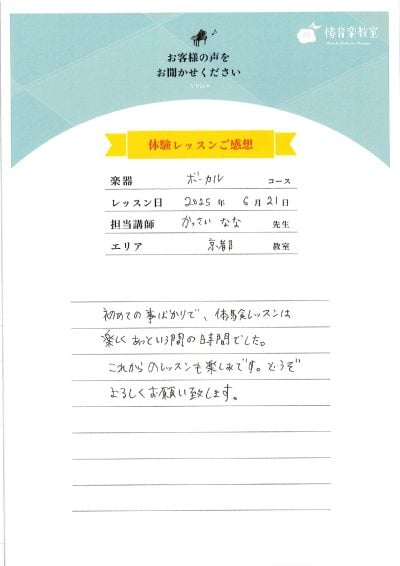 椿音楽教室
お客様の声を
お聞かせください
VOICE
体験レッスンご感想
楽器 ボーカル コース
レッスン日 2025 年 6 月 21 日
担当講師 かっせい なな 先生
エリア 京都 教室
初めての事ばかりで、体験レッスンは
楽しくあっという間の時間でした。
これからのレッスンも楽しみです。どうぞ
よろしくお願い致します。